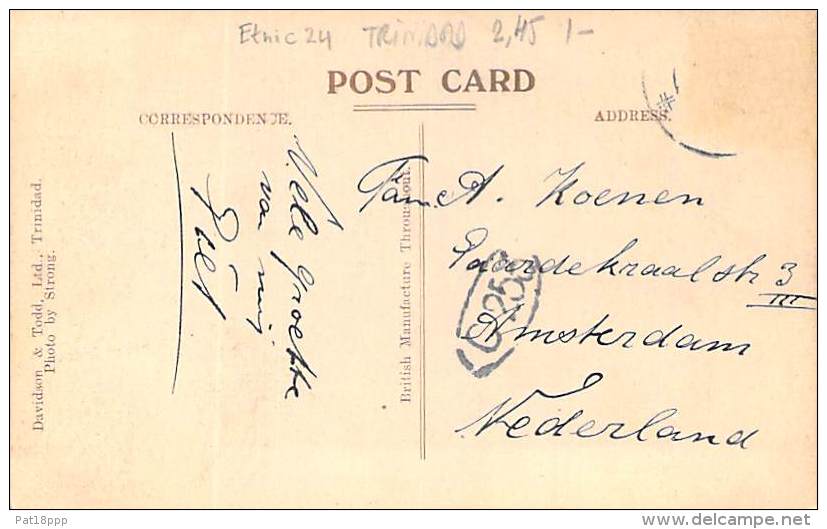 Etnic 24 TRINIDAD 2,45 1-
POST CARD
CORRESPONDENCE.
ADDRESS.
Davidson & Todd, Ltd., Trinidad.
Photo by Strong.
Vele Groeten
van mij
Piet
British Manufacture Throughout.
Fam. A. Koenen
Paardekraalstr 3
III
Amsterdam
Nederland
Pat18ppp
delcampe.net